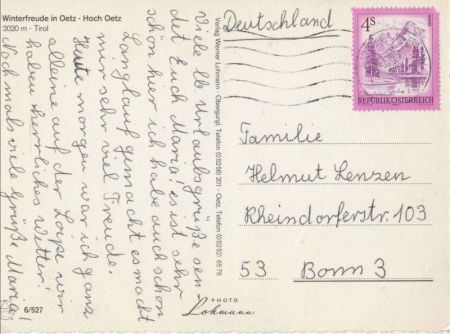 Winterfreude in Oetz - Hoch Oetz
2020 m - Tirol
Viele lb Urlaubsgrüße sen
det Euch Maria es ist sehr
schön hier ich habe auch schon
Langlauf gemacht es macht
mir sehr viel Freude.
Heute morgen war ich ganz
alleine auf der Loipe wir
haben herrliches Wetter!
Nochmals viele Grüße Maria
6/527
Verlag Werner Lohmann - Obergurgl, Telefon (05256) 201 - Oetz, Telefon (05252) 6578
PHOTO
Lohmann
Deutschland
4S
REPUBLIK ÖSTERREICH
Familie
Helmut Lenzen
Rheindorferstr. 103
53 Bonn 3